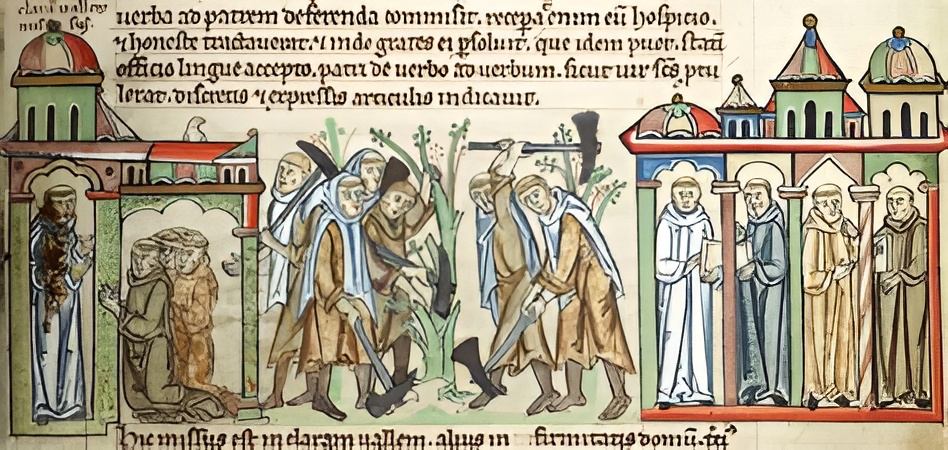 clara vallens
uerba ad patrem deferenda commisit. recepa enim eū hospicio.
⁊ honeste tractauerūt. ⁊ inde grates ei psoluit. que idem puer. statī
officio lingue accepto. patri de uerbo ad uerbum. sicut uir scs ptu
lerat. discretis ⁊ expressis articulis indicauit.
hic missus est in claram uallem. alius in firmitatis domū.